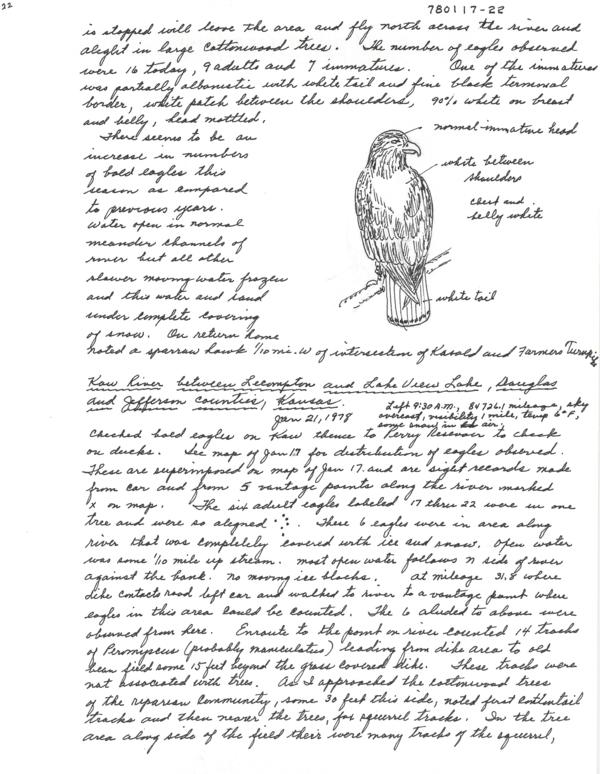 22
780117-22
is stopped will leave the area and fly north across the river and
alight in large cottonwood trees. The number of eagles observed
were 16 today, 9 adults and 7 immatures. One of the immatures
was partially albanistic with white tail and fine black terminal
border, white patch between the shoulders, 90% white on breast
and belly, head mottled.
There seems to be an
increase in numbers
of bald eagles this
season as compared
to previous years.
Water open in normal
meander channels of
river but all other
slower moving water frozen
and this water and sand
under complete covering
of snow. On return home
noted a sparrow hawk 1/10 mi. W of intersection of Kasold and Farmers Turnpike
normal immature head
white between
shoulders
chest and
belly white
white tail
Kaw River between Lecompton and Lake View Lake, Douglas
and Jefferson counties, Kansas.
Jan 21, 1978
Left 9:30 A.M., 84726.1 mileage, sky
overcast, visibility 1 mile, temp 6° F,
some snow in air.
Checked bald eagles on Kaw thence to Perry Resevoir to check
on ducks. See map of Jan 17 for distribution of eagles observed.
These are superimposed on map of Jan 17 and are sight records made
from car and from 5 vantage points along the river marked
x on map. The six adult eagles labeled 17 thru 22 were in one
tree and were so alegned. These 6 eagles were in area along
river that was completely covered with ice and snow. Open water
was some 1/10 mile up stream. most open water follows N side of river
against the bank. no moving ice blocks. at mileage 31.8 where
dike contacts road left car and walked to river to a vantage point where
eagles in this area could be counted. The 6 aluded to above were
observed from here. Enroute to the point on river counted 14 tracks
of Peromyscus (probably maniculatus) leading from dike area to old
bean field some 15 feet beyond the grass covered dike. These tracks were
not associated with trees. As I approached the cottonwood trees
of the riparian community, some 30 feet this side, noted first cottontail
tracks and then nearer the trees, fox squirrel tracks. In the tree
area along side of the field their were many tracks of the squirrel,